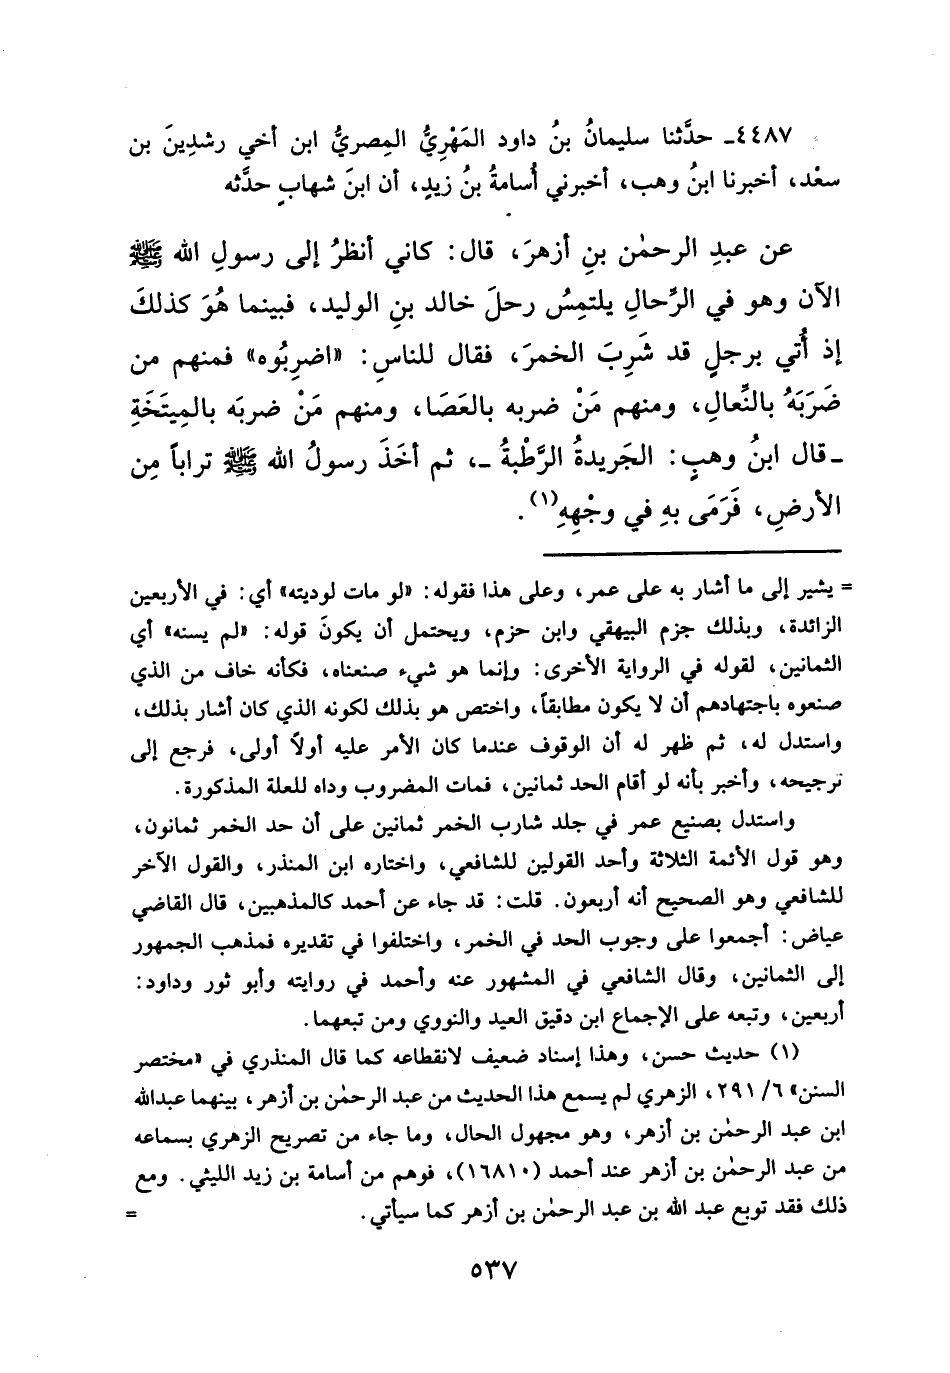 ٤٤٨٧ـ حدَّثنا سليمانُ بنُ داود المَهْرِيُّ المِصريُّ ابن أخي رشدِينَ بن
سعْد، أخبرنا ابنُ وهب، أخبرني أُسامةُ بنُ زيدٍ، أن ابنَ شهابٍ حدَّثه
عن عبدِ الرحمٰن بنِ أزهرَ، قال: كاني أنظرُ إلى رسولِ الله ﷺ
الآن وهو في الرِّحالِ يلتمِسُ رحلَ خالد بنِ الوليد، فبينما هُوَ كذلكَ
إذ أُتي برجلٍ قد شَرِبَ الخمرَ، فقال للناسِ: «اضرِبُوه» فمنهم من
ضَرَبَهُ بالنِّعالِ، ومنهم مَنْ ضربه بالعَصَا، ومنهم مَنْ ضربَه بالمِيتَخَةِ
ـ قال ابنُ وهبٍ: الجَريدةُ الرَّطْبةُ ـ، ثم أخَذَ رسولُ الله ﷺ تراباً مِن
الأرضِ، فَرَمَى بهِ في وجْهِهِ(١).
= يشير إلى ما أشار به على عمر، وعلى هذا فقوله: «لو مات لوديته» أي: في الأربعين
الزائدة، وبذلك جزم البيهقي وابن حزم، ويحتمل أن يكونَ قوله: «لم يسنه» أي
الثمانين، لقوله في الرواية الأخرى: وإنما هو شيء صنعناه، فكأنه خاف من الذي
صنعوه باجتهادهم أن لا يكون مطابقاً، واختص هو بذلك لكونه الذي كان أشار بذلك،
واستدل له، ثم ظهر له أن الوقوف عندما كان الأمر عليه أولاً أولى، فرجع إلى
ترجيحه، وأخبر بأنه لو أقام الحد ثمانين، فمات المضروب وداه للعلة المذكورة.
واستدل بصنيع عمر في جلد شارب الخمر ثمانين على أن حد الخمر ثمانون،
وهو قول الأئمة الثلاثة وأحد القولين للشافعي، واختاره ابن المنذر، والقول الآخر
للشافعي وهو الصحيح أنه أربعون. قلت: قد جاء عن أحمد كالمذهبين، قال القاضي
عياض: أجمعوا على وجوب الحد في الخمر، واختلفوا في تقديره فمذهب الجمهور
إلى الثمانين، وقال الشافعي في المشهور عنه وأحمد في روايته وأبو ثور وداود:
أربعين، وتبعه على الإجماع ابن دقيق العيد والنووي ومن تبعهما.
(١) حديث حسن، وهذا إسناد ضعيف لانقطاعه كما قال المنذري في «مختصر
السنن» ٦/ ٢٩١، الزهري لم يسمع هذا الحديث من عبد الرحمٰن بن أزهر، بينهما عبدالله
ابن عبد الرحمٰن بن أزهر، وهو مجهول الحال، وما جاء من تصريح الزهري بسماعه
من عبد الرحمٰن بن أزهر عند أحمد (١٦٨١٠)، فوهم من أسامة بن زيد الليثي. ومع
ذلك فقد توبع عبد الله بن عبد الرحمٰن بن أزهر كما سيأتي. =
٥٣٧